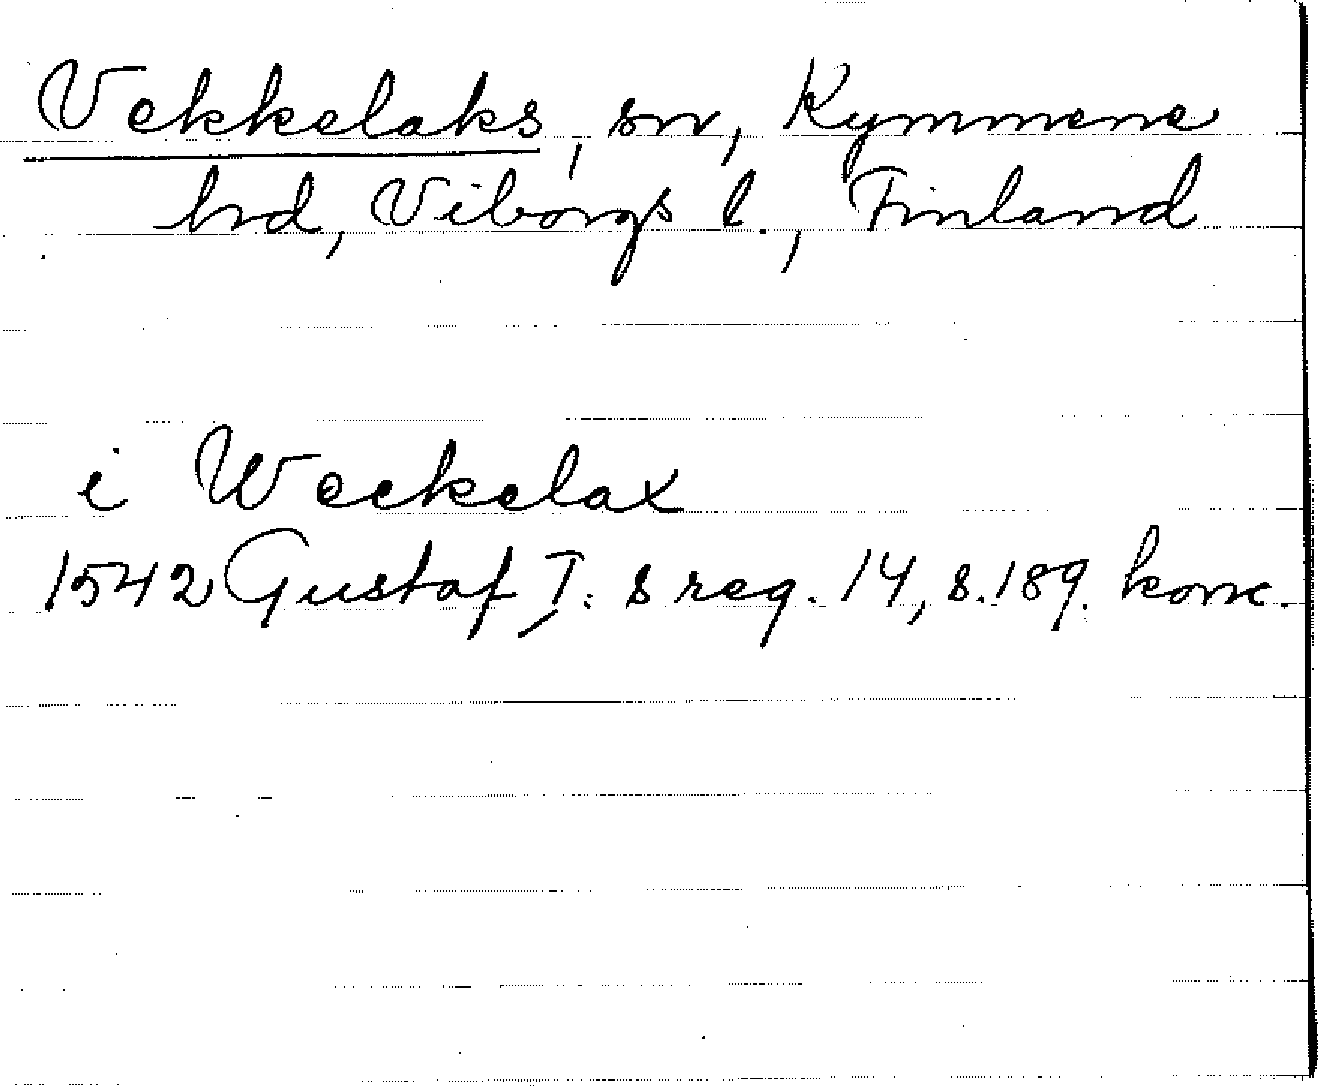 Vekkelaks, sn, Kymmene
hd, Viborgs l., Finland
i Weckelax
1542 Gustaf I:s reg. 14, s. 189. konc.